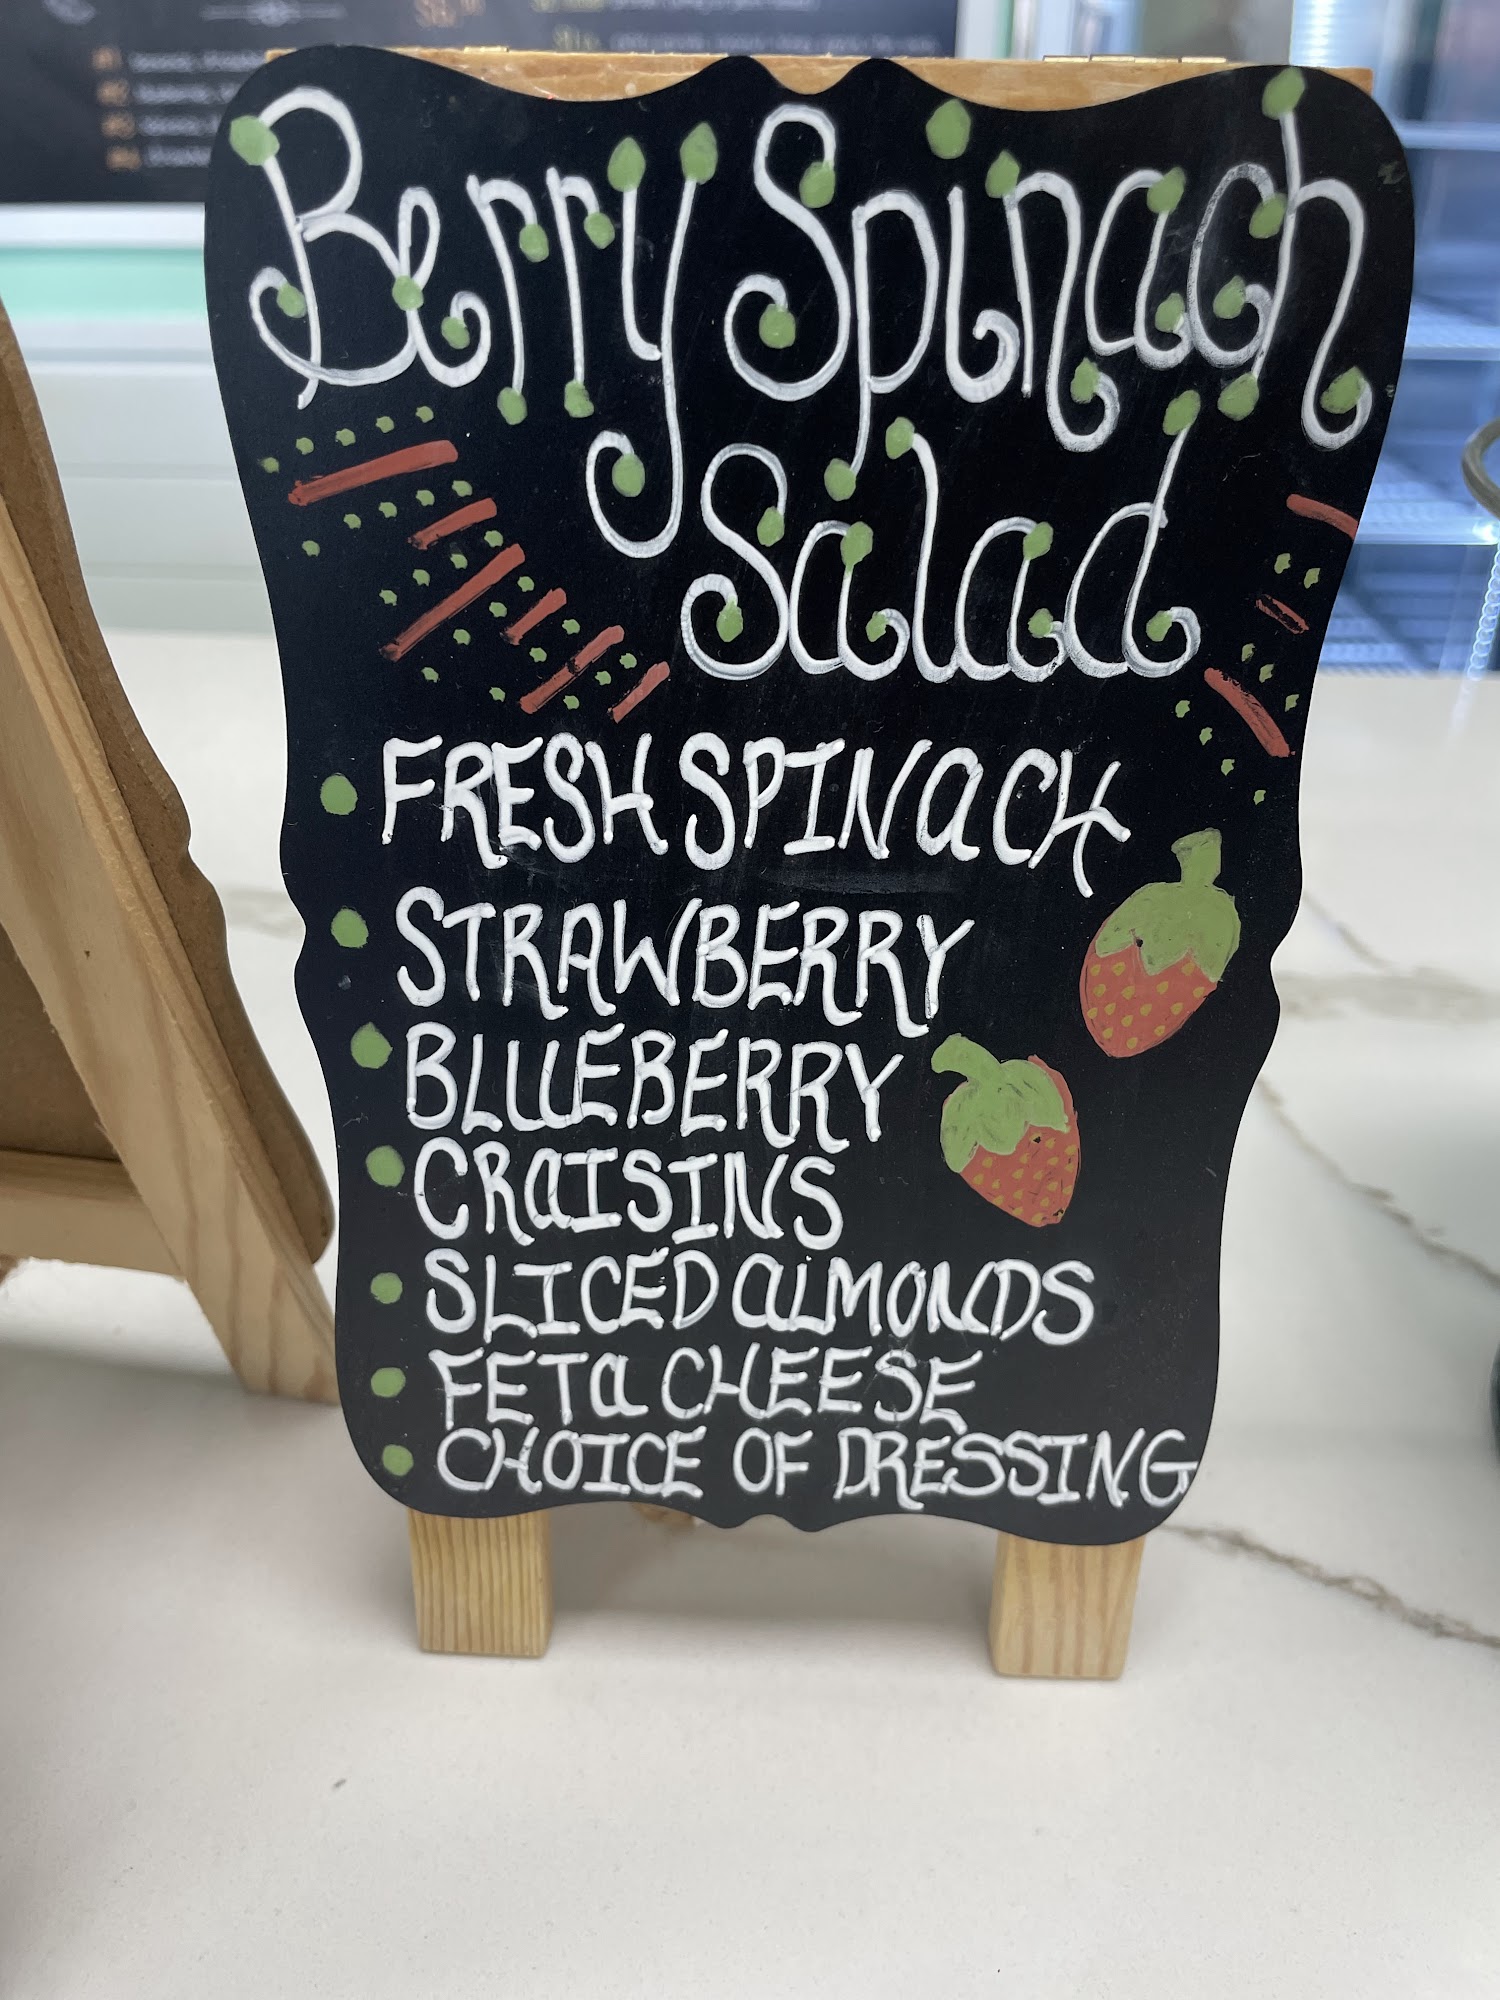 Berry Spinach
Salad
FRESH SPINaCH
STRAWBERRY
BLUEBERRY
CRaISINS
SLICED aLMONDS
FETa CHEESE
CHOICE OF DRESSING